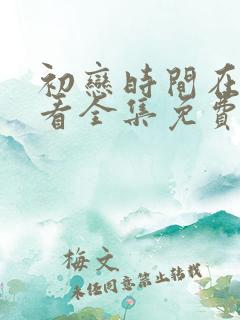 初戀時間在
看全集免費
梅文
未任同意禁止转载